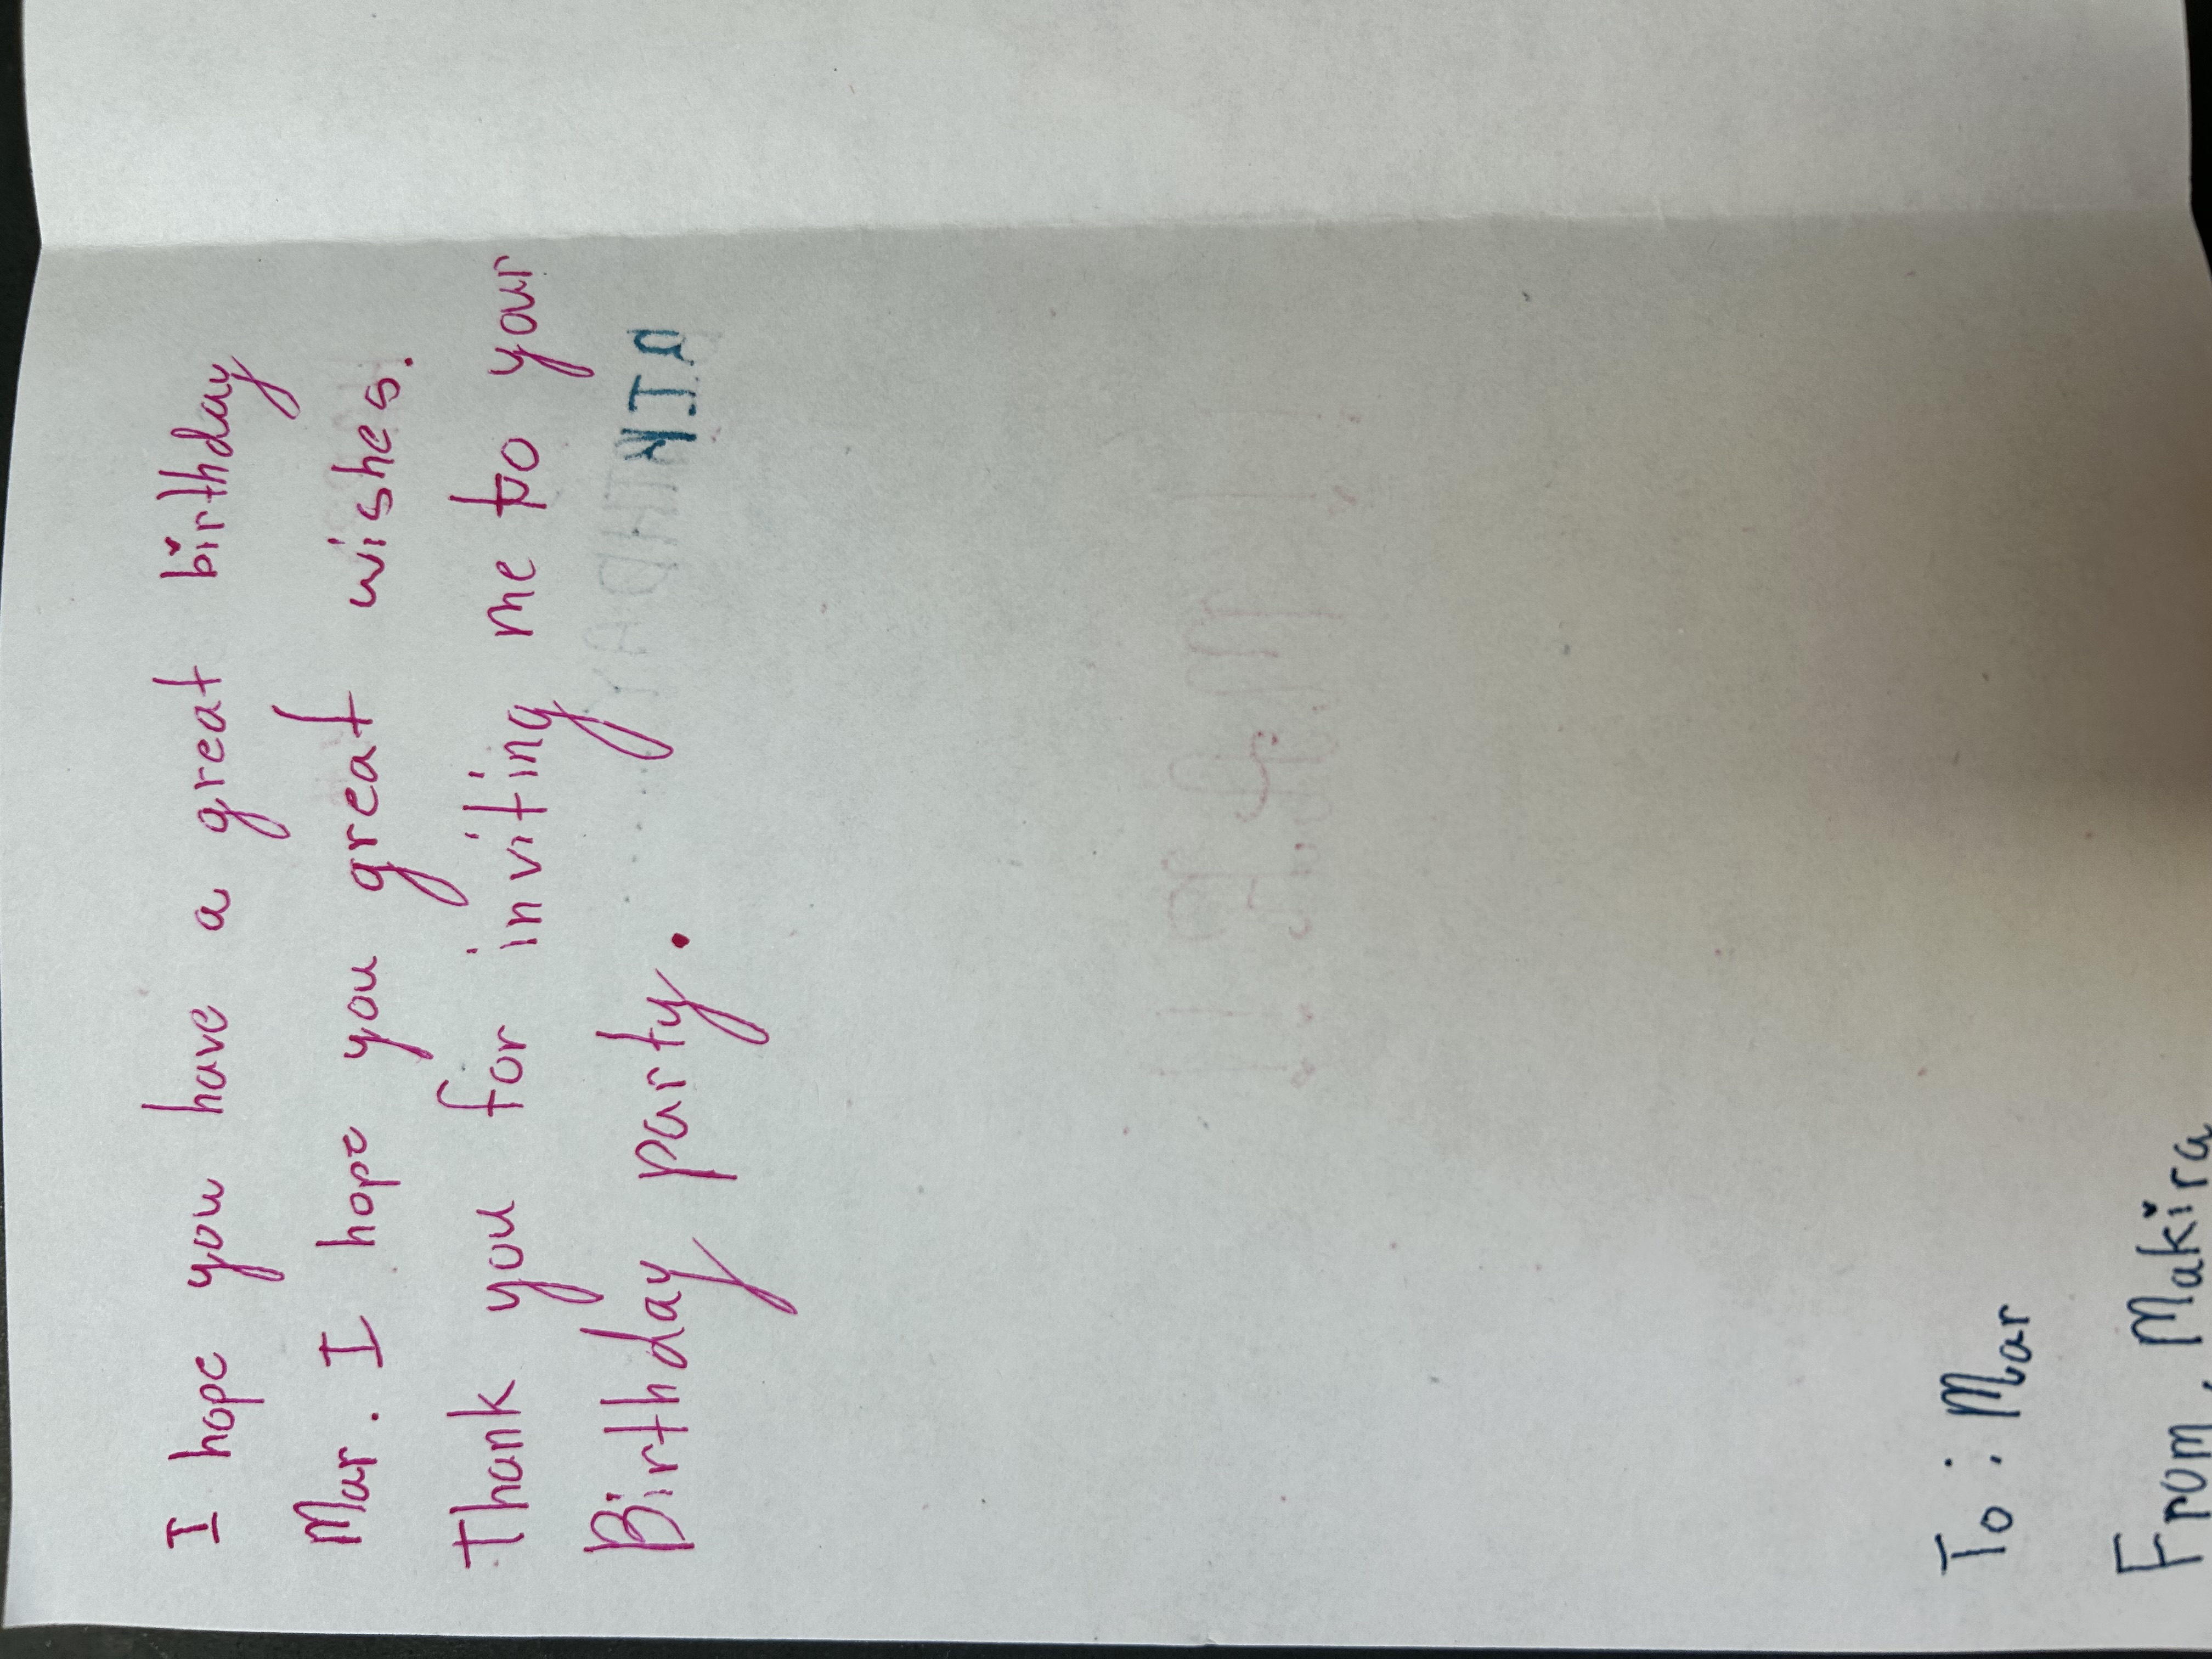 I hope you have a great birthday
Mar. I hope you great wishes.
Thank you for inviting me to your
Birthday party.
To : Mar
From, Makira